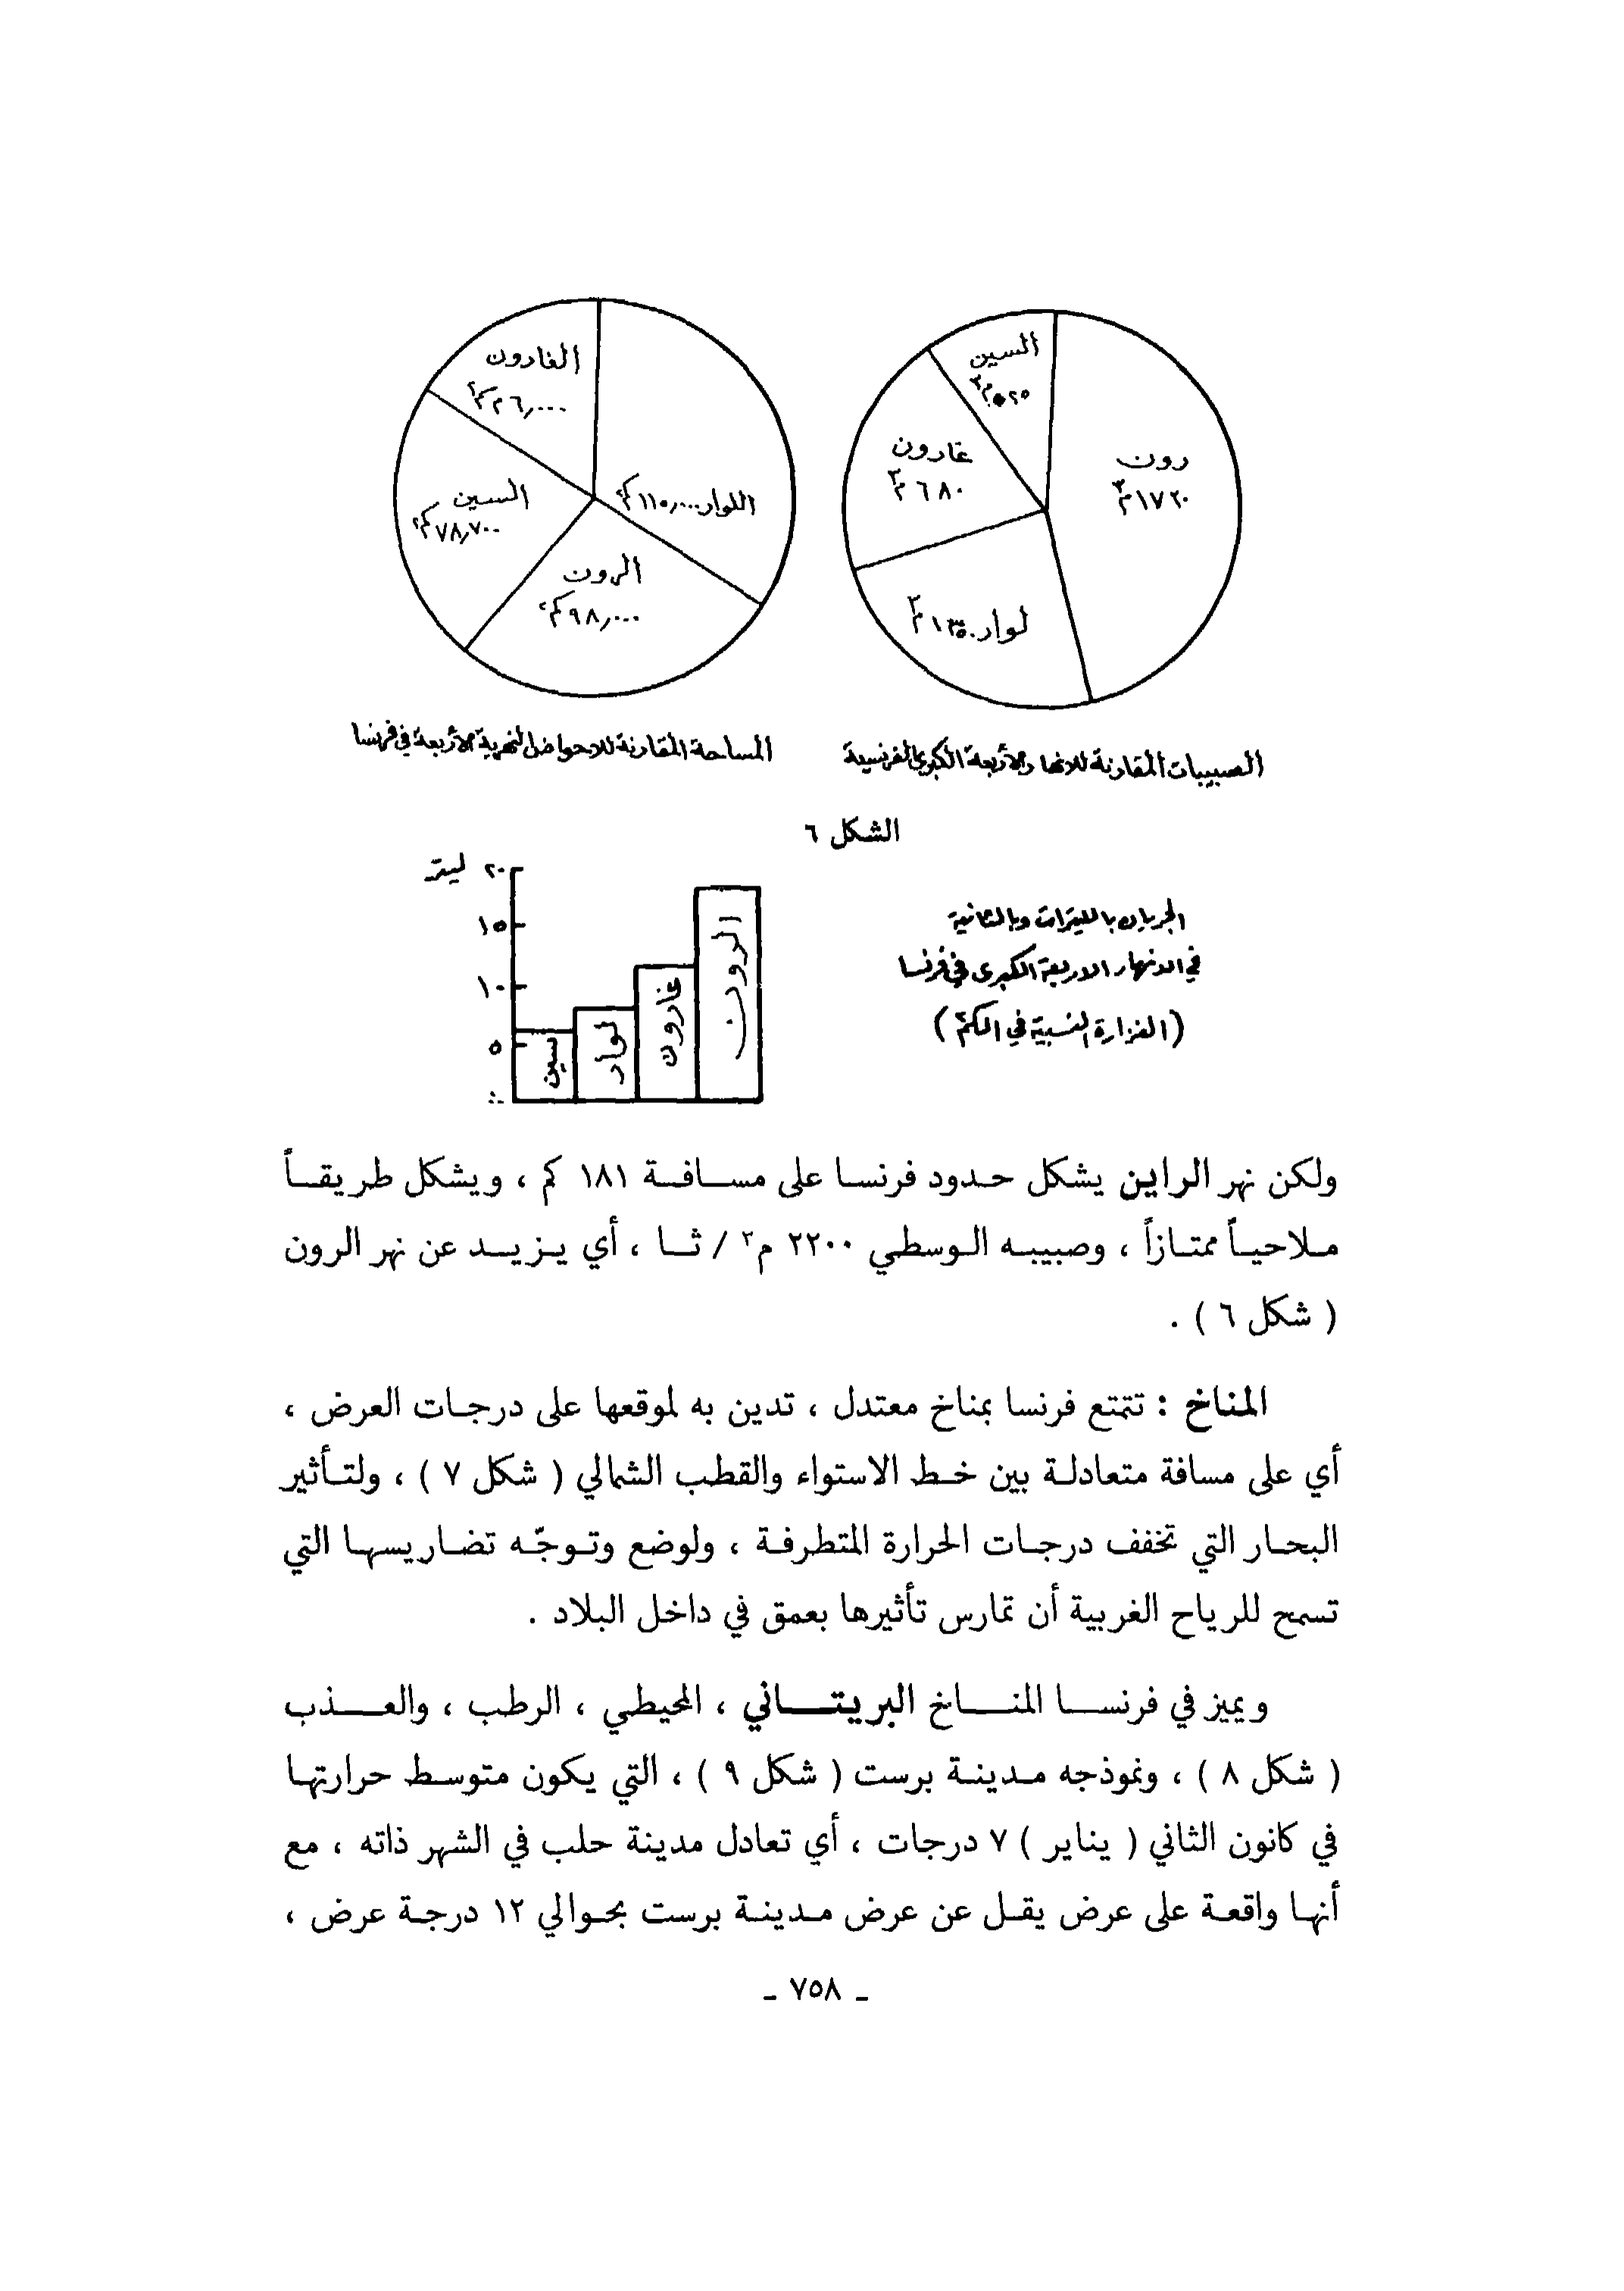 السين
رون
١٧٢٠ م٣
غارون
٦٨٠ م٣
لوار
الغارون
اللوار ١١٥,٠٠٠ كم٢
السين
٧٨,٧٠٠ كم٢
الرون
٩٨,٠٠٠ كم٢
الصبيبات المقارنة للانهار الأربعة الكبرى الفرنسية
المساحة المقارنة للاحواض النهرية الأربعة في فرنسا
الشكل ٦
الجريان بالليترات وبالثانية
في الانهار الاربعة الكبرى في فرنسا
(الغزارة النسبية في الكم٢)
٢٠ ليتر
١٥
١٠
٥
سين
لوار
غارون
الرون
ولكن نهر الراين يشكل حدود فرنسا على مسافة ١٨١ كم ، ويشكل طريقاً
ملاحياً ممتازاً ، وصبيبه الوسطي ٢٢٠٠ م٣ / ثا ، أي يزيد عن نهر الرون
( شكل ٦ ) .
المناخ : تتمتع فرنسا بمناخ معتدل ، تدين به لموقعها على درجات العرض ،
أي على مسافة متعادلة بين خط الاستواء والقطب الشمالي ( شكل ٧ ) ، ولتأثير
البحار التي تخفف درجات الحرارة المتطرفة ، ولوضع وتوجّه تضاريسها التي
تسمح للرياح الغربية أن تمارس تأثيرها بعمق في داخل البلاد .
ويميز في فرنسا المناخ البريتاني ، المحيطي ، الرطب ، والعذب
( شكل ٨ ) ، ونموذجه مدينة برست ( شكل ٩ ) ، التي يكون متوسط حرارتها
في كانون الثاني ( يناير ) ٧ درجات ، أي تعادل مدينة حلب في الشهر ذاته ، مع
أنها واقعة على عرض يقل عن عرض مدينة برست بحوالي ١٢ درجة عرض ،
ـ ٧٥٨ ـ